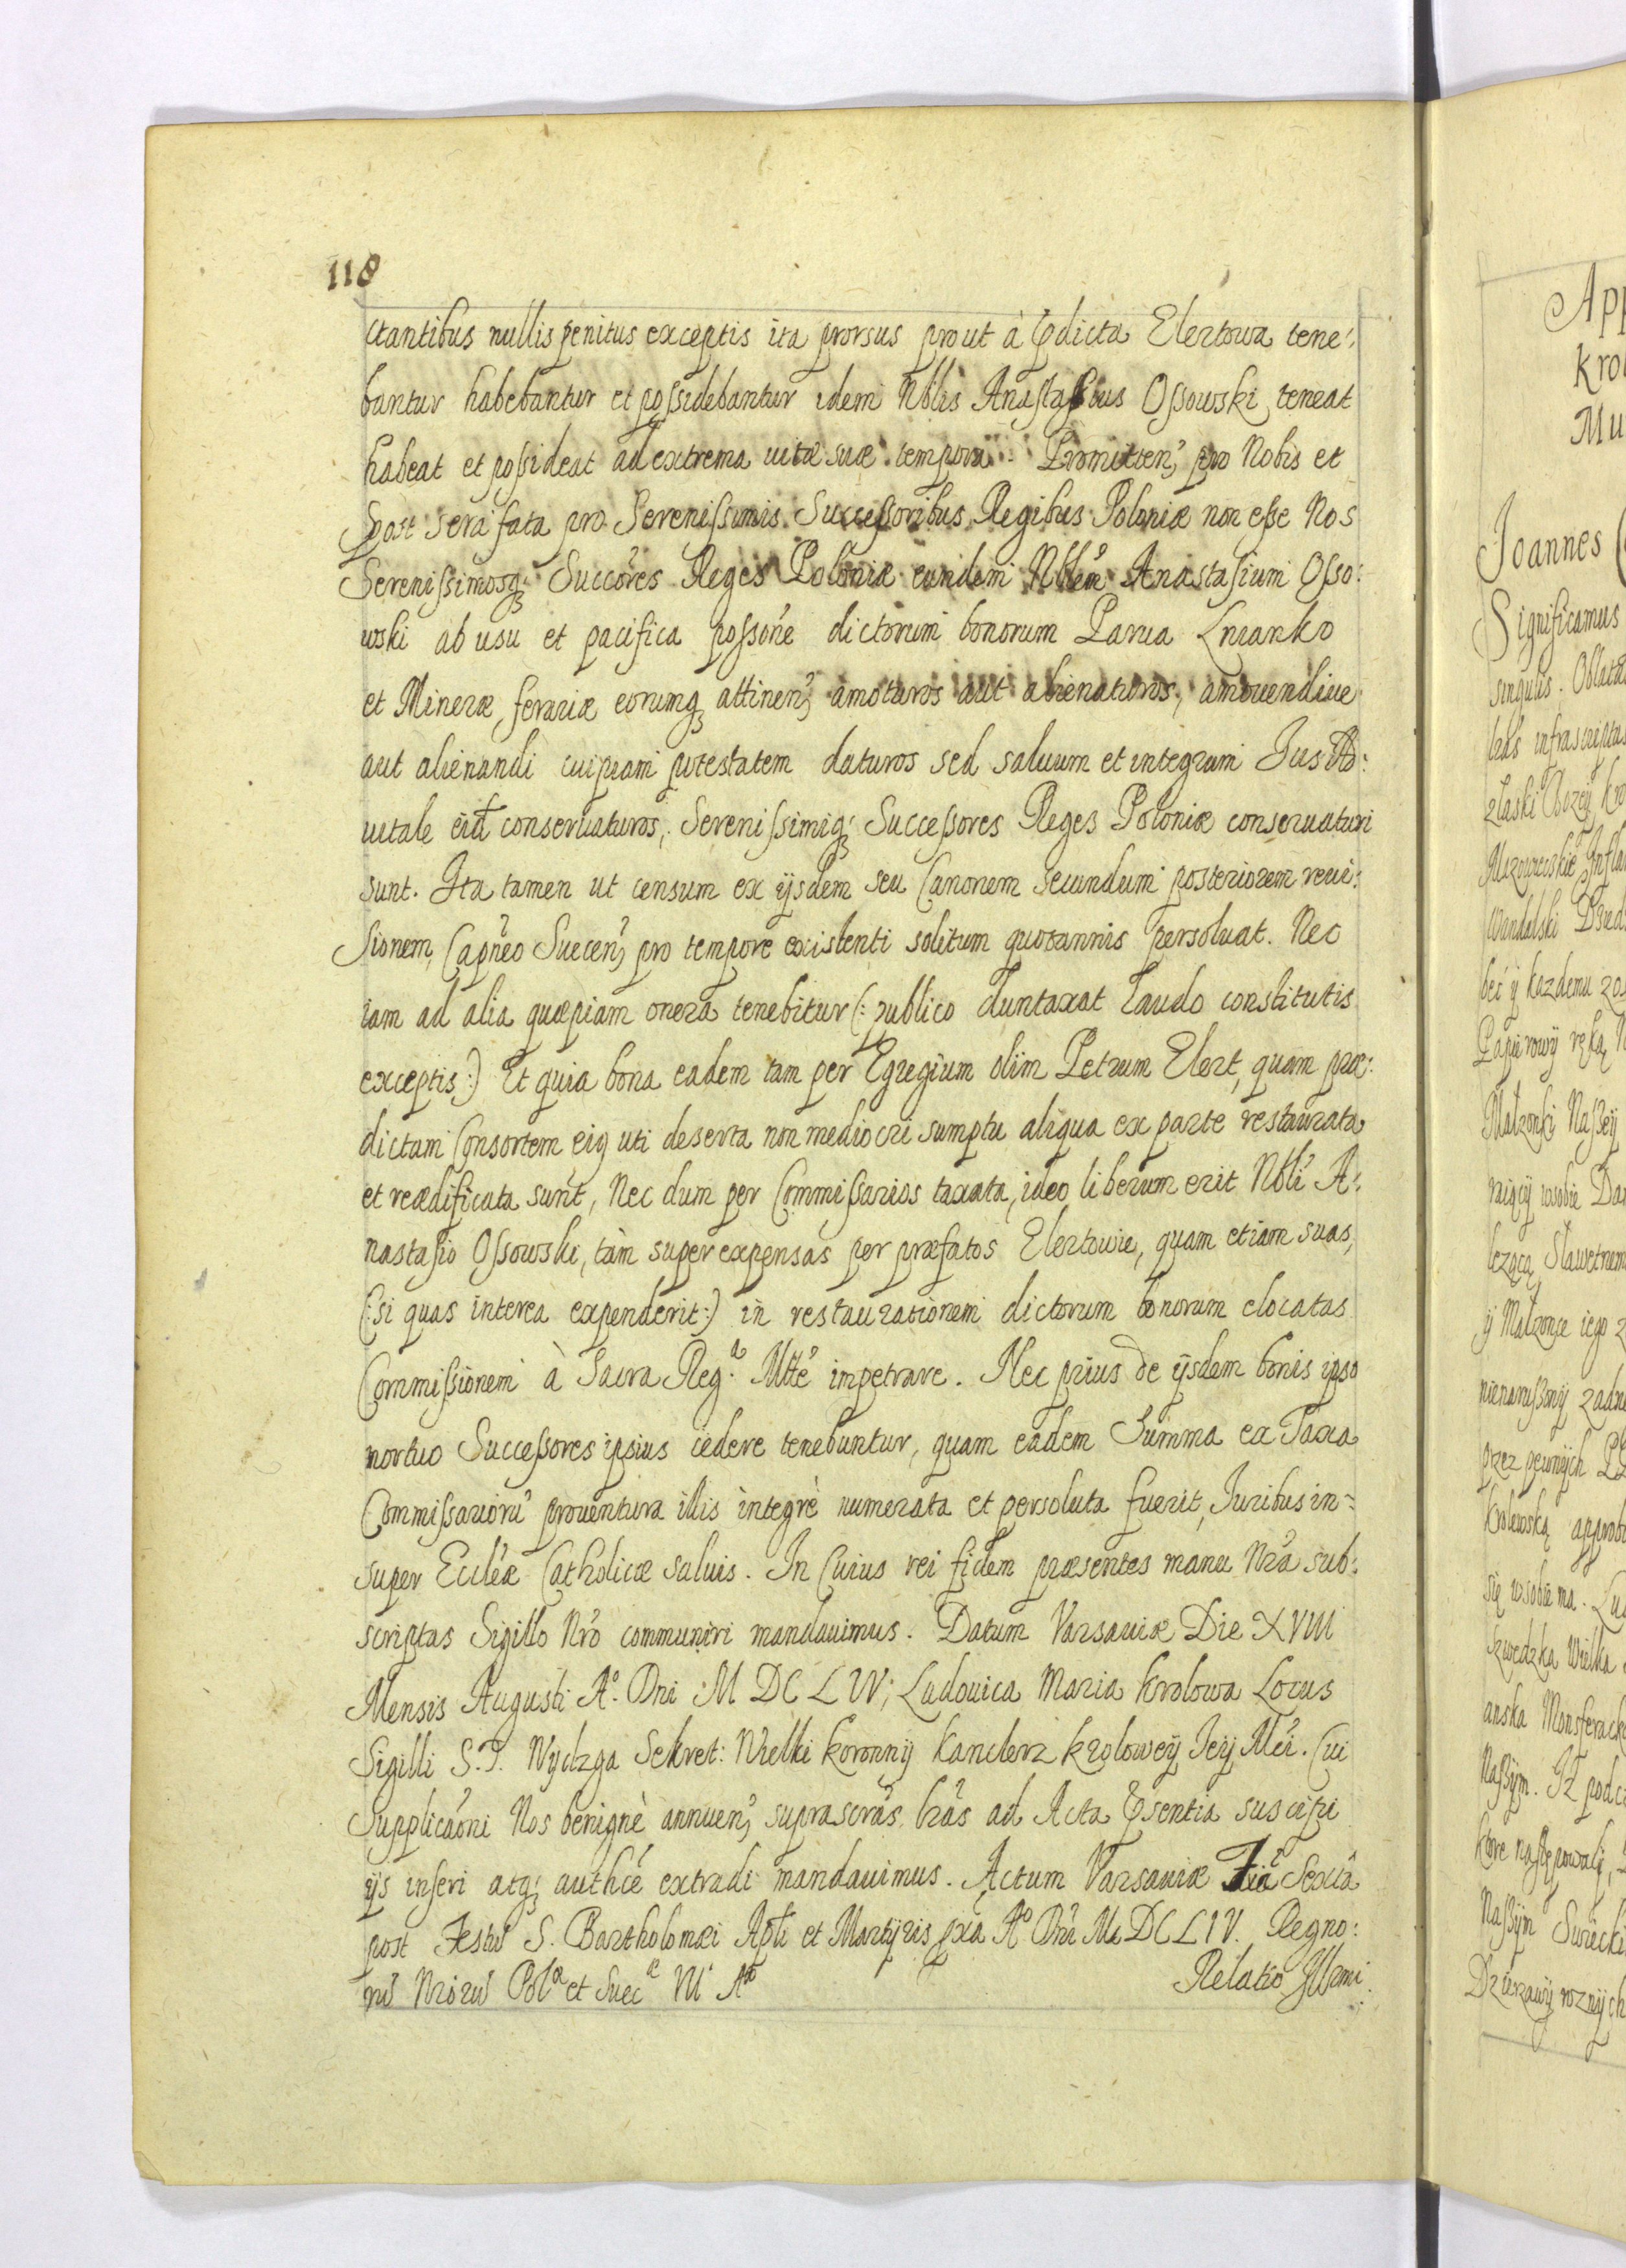 118
ctantibus nullis penitus exceptis ita prorsus prout à pdicta Elertowa tene:
bantur habebantur et possidebantur idem Nblis Anastasius Ossowski teneat
habeat et possideat ad extrema uitæ suæ tempora. Promitten, pro Nobis et
post sera fata pro Serenissimis Successoribus Regibus Poloniæ non esse Nos
Serenissimosq; Succőres Reges Poloniæ eundem Nblem Anastasium Osso:
wski ab usu et pacifica posső́ne dictorum bonorum Parua Lnianko
et Mineræ ferariæ eorumq attinen, amoturos aut alienaturos, amouendiue
aut alienandi cuipiam potestatem daturos sed saluum et integrum Jus Ad:
uitale eid conseruaturos, Serenissimiq; Successores Reges Poloniæ conseruaturi
sunt. Ita tamen ut censum ex ijsdem seu Canonem secundum posteriorem reui:
sionem, Capneo Suecen, pro tempore existenti solitum quotannis persoluat. Nec
iam ad alia quæpiam onera tenebitur (: publico duntaxat Laudo constitutis
exceptis :) Et quia bona eadem tam per Egregium olim Petrum Elert, quam præ:
dictam Consortem eig uti deserta non mediocri sumptu aliqua ex parte restaurata
et reædificata sunt, Nec dum per Commissarios taxata, ideo liberum erit Nbli A:
nastasio Ossowski, tàm super expensas per præfatos Elertowie, quam etiam suas,
(: si quas interea expenderit :) in restaurationem dictorum bonorum elocatas
Commissionem à Sacra Reg.a Mtte impetrare. Nec prius de ijsdem bonis ipso
mortuo Successores ipsius cedere tenebuntur, quam eadem Summa ex Taxa
Commissarioru prouentura illis integrè numerata et persoluta fuerit, Juribus in:
super Eccleæ Catholicæ saluis. In Cuius rei fidem præsentes manu Nra sub:
scriptas Sigillo Nro communiri mandauimus. Datum Varsauiæ Die XVIII
Mensis Augusti Ao. Dni M DC LIV; Ludouica Maria Krolowa Locus
Sigilli S. J. Wydzga Sekret: Wielki Koronnij Kanclerz Krolowey Jey Mci. Cui
Supplicaoni Nos benignè annuen, suprascras lras ad Acta psentia suscipi
ijs inseri atq; authce extradi mandauimus. Actum Varsauiæ Fia Sexta
post Festu S. Bartholomæi Apli et Martyris pxa Ao Dni M DC LIV. Regno:
ru Nroru Polæ et Suecæ VI Ao
Relatio Illrmi
App
Kro
Mu
Joannes
Significamus
singulis. Oblata
lras infrascriptas
z łaski Bozey Kro
Wandalski
beć ÿ kazdemu
Papierowÿ ręką
Małzonki Naßey
lezącą Sławetnem
ÿ Małzonce iego
przez pewnych
Krolewską approb
się wsobie ma.
szwedzka Wielka
anska
Naßym. Iż
ktore następowali,
Naßym
Dzierzawy roznych